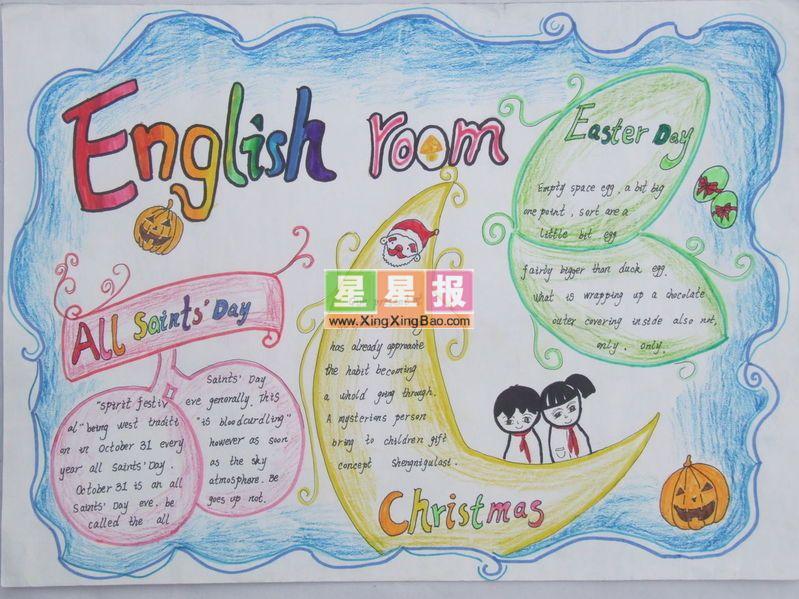 English room
Easter Day
Empty space egg, a bit big
one point, sort are a
little bit egg
fairly bigger than duck egg.
What is wrapping up a chocolate
outer covering inside also not,
only. only.
星星报
www.XingXingBao.com
All Saints' Day
"spirit festiv
al" being west traditi
on in October 31 every
year all Saints' Day.
October 31 is an all
Saints' Day eve. be
called the all
Saints' Day
eve generally. This
"is bloodcurdling"
however as soon
as the sky
atmosphere. Be
goes up not.
has already approache
the habit becoming
a whold going through.
A mysterions person
bring to children gift
concept Shengnigulast.
Christmas